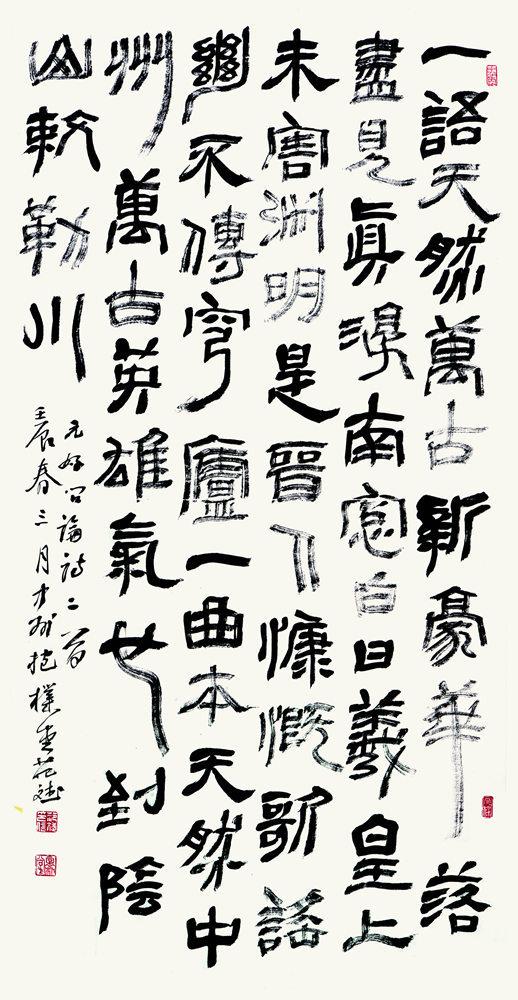 一語天然萬古新豪華落
盡見眞淳南窓白日羲皇上
未害淵明是晉人慷慨歌謠
絕不傳穹廬一曲本天然中
州萬古英雄氣也到陰
山敕勒川
元好問論詩二首
壬辰春三月於抱樸